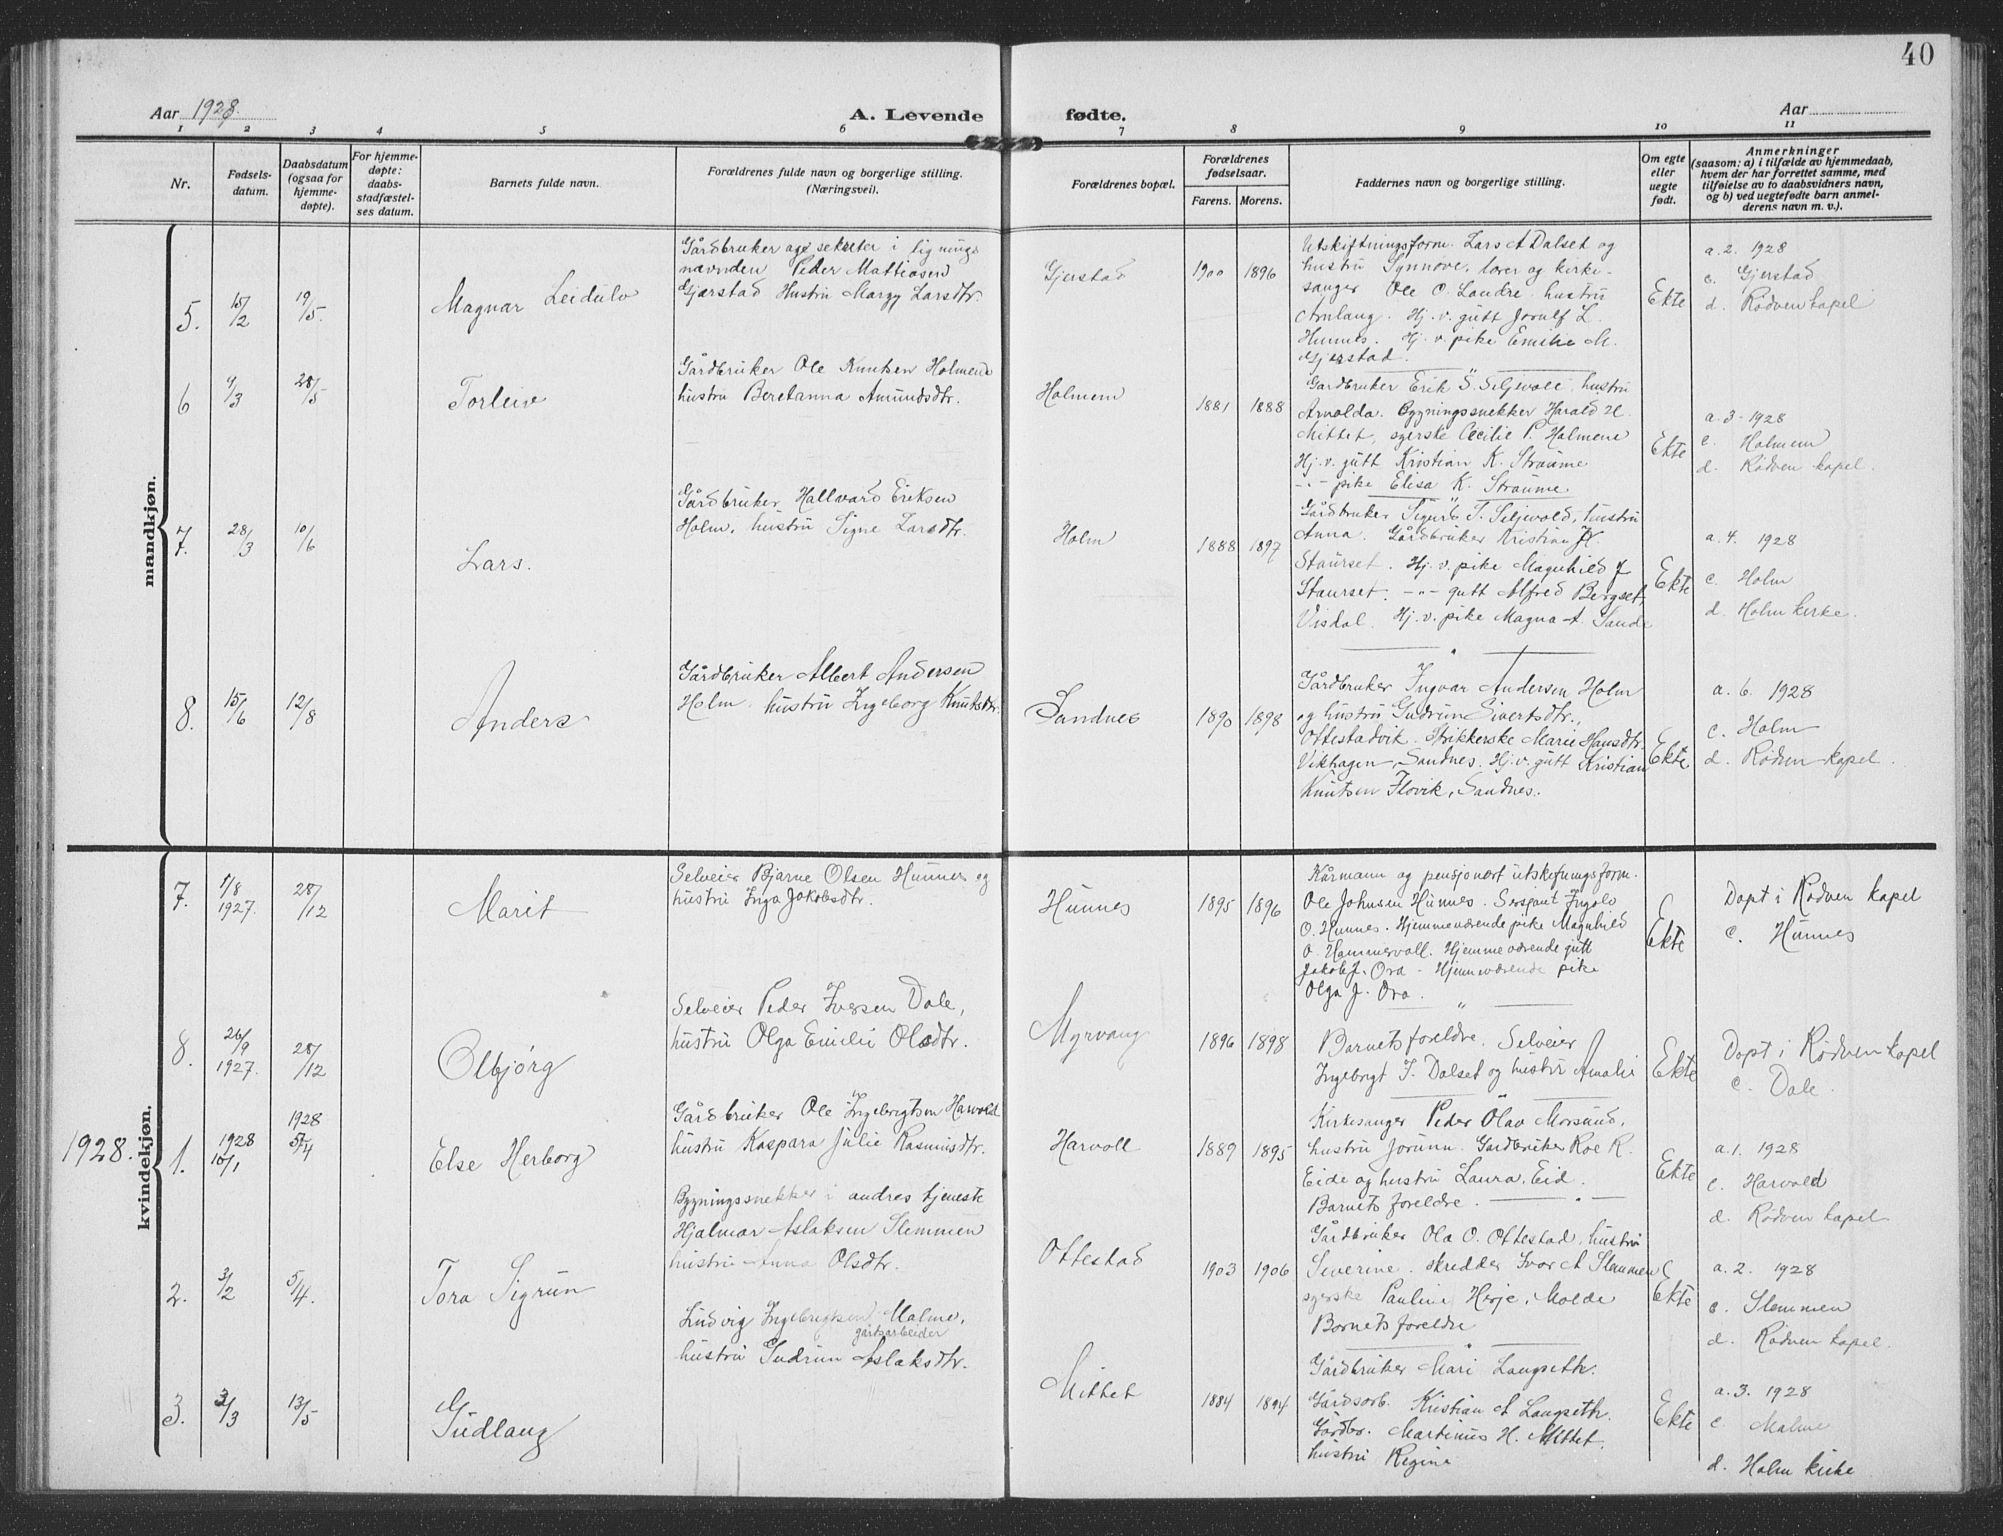 40
Aar 1928.
A. Levende fødte.
Aar
1 2 3 4 5 6 7 8 9 10 11
Nr.
Fødsels-
datum.
Daabsdatum
(ogsaa for
hjemme-
døpte).
For hjemme-
døpte:
daabs-
stadfæstel-
ses datum.
Barnets fulde navn.
Forældrenes fulde navn og borgerlige stilling.
(Næringsvei).
Forældrenes bopæl.
Forældrenes
fødselsaar.
Farens. Morens.
Faddernes navn og borgerlige stilling.
Om egte
eller
uegte
født.
Anmerkninger
(saasom: a) i tilfælde av hjemmedaab,
hvem der har forrettet samme, med
tilføielse av to daabsvidners navn,
og b) ved uegtefødte barn anmel-
derens navn m. v.).
mandkjøn.
5.
15/2
19/5.
Magnar Leidulv
Gårdbruker og sekretær i lignings
nævnden Peder Mattiasen
Gjærstad Hustru Margy Larsdtr.
Gjerstad
1900 1896
Utskiftningsform. Lars A Dalset og
hustru Synnøve, lærer og kirke-
sanger Ole O. Landre hustru
Arnlaug. Hj. v. gutt Jorulf L.
Hunnes. Hj. v. pike Emilie M.
Gjerstad.
Ekte
a. 2. 1928
c. Gjerstad
d. Rødven kapel
6
4/3
28/5
Torleiv
Gårdbruker Ole Knutsen Holmem
hustru Beretanna Amundsdtr.
Holmem
1881 1888
Gardbruker Erik S. Siljevoll, hustru
Arnolda. Bygningssnekker Harald H.
Mittet, syerske Cecilie P. Holmem
Hj. v. gutt Kristian K. Straume
-"- pike Elisa K. Straume.
Ekte
a. 3 - 1928
c. Holmem
d. Rødven kapel.
7.
28/3
10/6
Lars.
Gårdbruker Hallvard Eriksen
Holm, hustru Signe Larsdtr.
Holm
1888 1897
Gårdbruker Sigurd T. Siljevold, hustru
Anna. Gårdbruker Kristian K.
Staurset. Hj. v. pike Magnhild J
Staurset. -"- gutt Alfred Bergset,
Visdal. Hj. v. pike Magna A. Sande
Ekte
a. 4. 1928
c. Holm
d. Holm kirke.
8.
15/6
12/8
Anders
Gårdbruker Albert Andersen
Holm. hustru Ingeborg Knutsdtr.
Sandnes
1890 1898
Gårdbruker Ingvar Andersen Holm
og hustru Gudrun Sivertsdtr.,
Ottestadvik. Strikkerske Marie Hansdtr.
Vikhagen, Sandnes. Hj. v. gutt Kristian
Knutsen Flovik, Sandnes.
Ekte
a. 6. 1928
c. Holm
d. Rødven kapel.
kvindekjøn.
7.
1/8
1927.
28/12
Marit
Selveier Bjarne Olsen Hunnes og
hustru Inga Jakobsdtr.
Hunnes
1895 1896
Kårmann og pensjonert utskiftningsform.
Ole Johnsen Hunnes. Sersjant Ingolv
O. Hunnes. Hjemmeværende pike Magnhild
O. Hammervoll. Hjemmeværende gutt
Jakob J. Ora - Hjemmeværende pike
Olga J. Ora.
Ekte
Døpt i Rødven kapel
c. Hunnes
8.
26/9
1927.
28/12
Olbjørg
Selveier Peder Iversen Dale,
hustru Olga Emilie Olsdtr.
Myrvang
1896 1898
Barnets foreldre. Selveier
Ingebrigt I. Dalset og hustru Amalie
Ekte
Døpt i Rødven kapel
c. Dale.
1928.
1.
1928
10/1
1928
5/4
Else Herborg
Gårdbruker Ole Ingebrigtsen Harvold
hustru Kaspara Julie Rasmusdtr.
Harvoll
1889 1895
Kirkesanger Peder Olav Morsund,
hustru Jorunn. Gardbruker Roe R.
Eide og hustru Laura, Eid.
Barnets foreldre.
Ekte
a. 1. 1928
c. Harvold
d. Rødven kapel
2.
3/2
5/4.
Tora Sigrun
Bygningssnekker i andres tjeneste
Hjalmar Aslaksen Slemmen
hustru Anna Olsdtr.
Ottestad
1903 1906
Gårdbruker Ola O. Ottestad, hustru
Severine. skredder Ivar A Slemmen
syerske Pauline Herje, Molde
Barnets foreldre
Ekte
a. 2. 1928
c. Slemmen
d. Rødven kapel.
3.
3/3
13/5
Gudlaug
Ludvig Ingebrigtsen Malme,
gårdsarbeider
hustru Gudrun Aslaksdtr.
Mittet
1884 1894
Gårdbruker Mari Langseth.
Gårdsarb. Kristian A Langseth.
Gårdbr. Martinus H. Mittet.
hustru Regine
Ekte
a. 3. 1928
c. Malme
d. Holm kirke